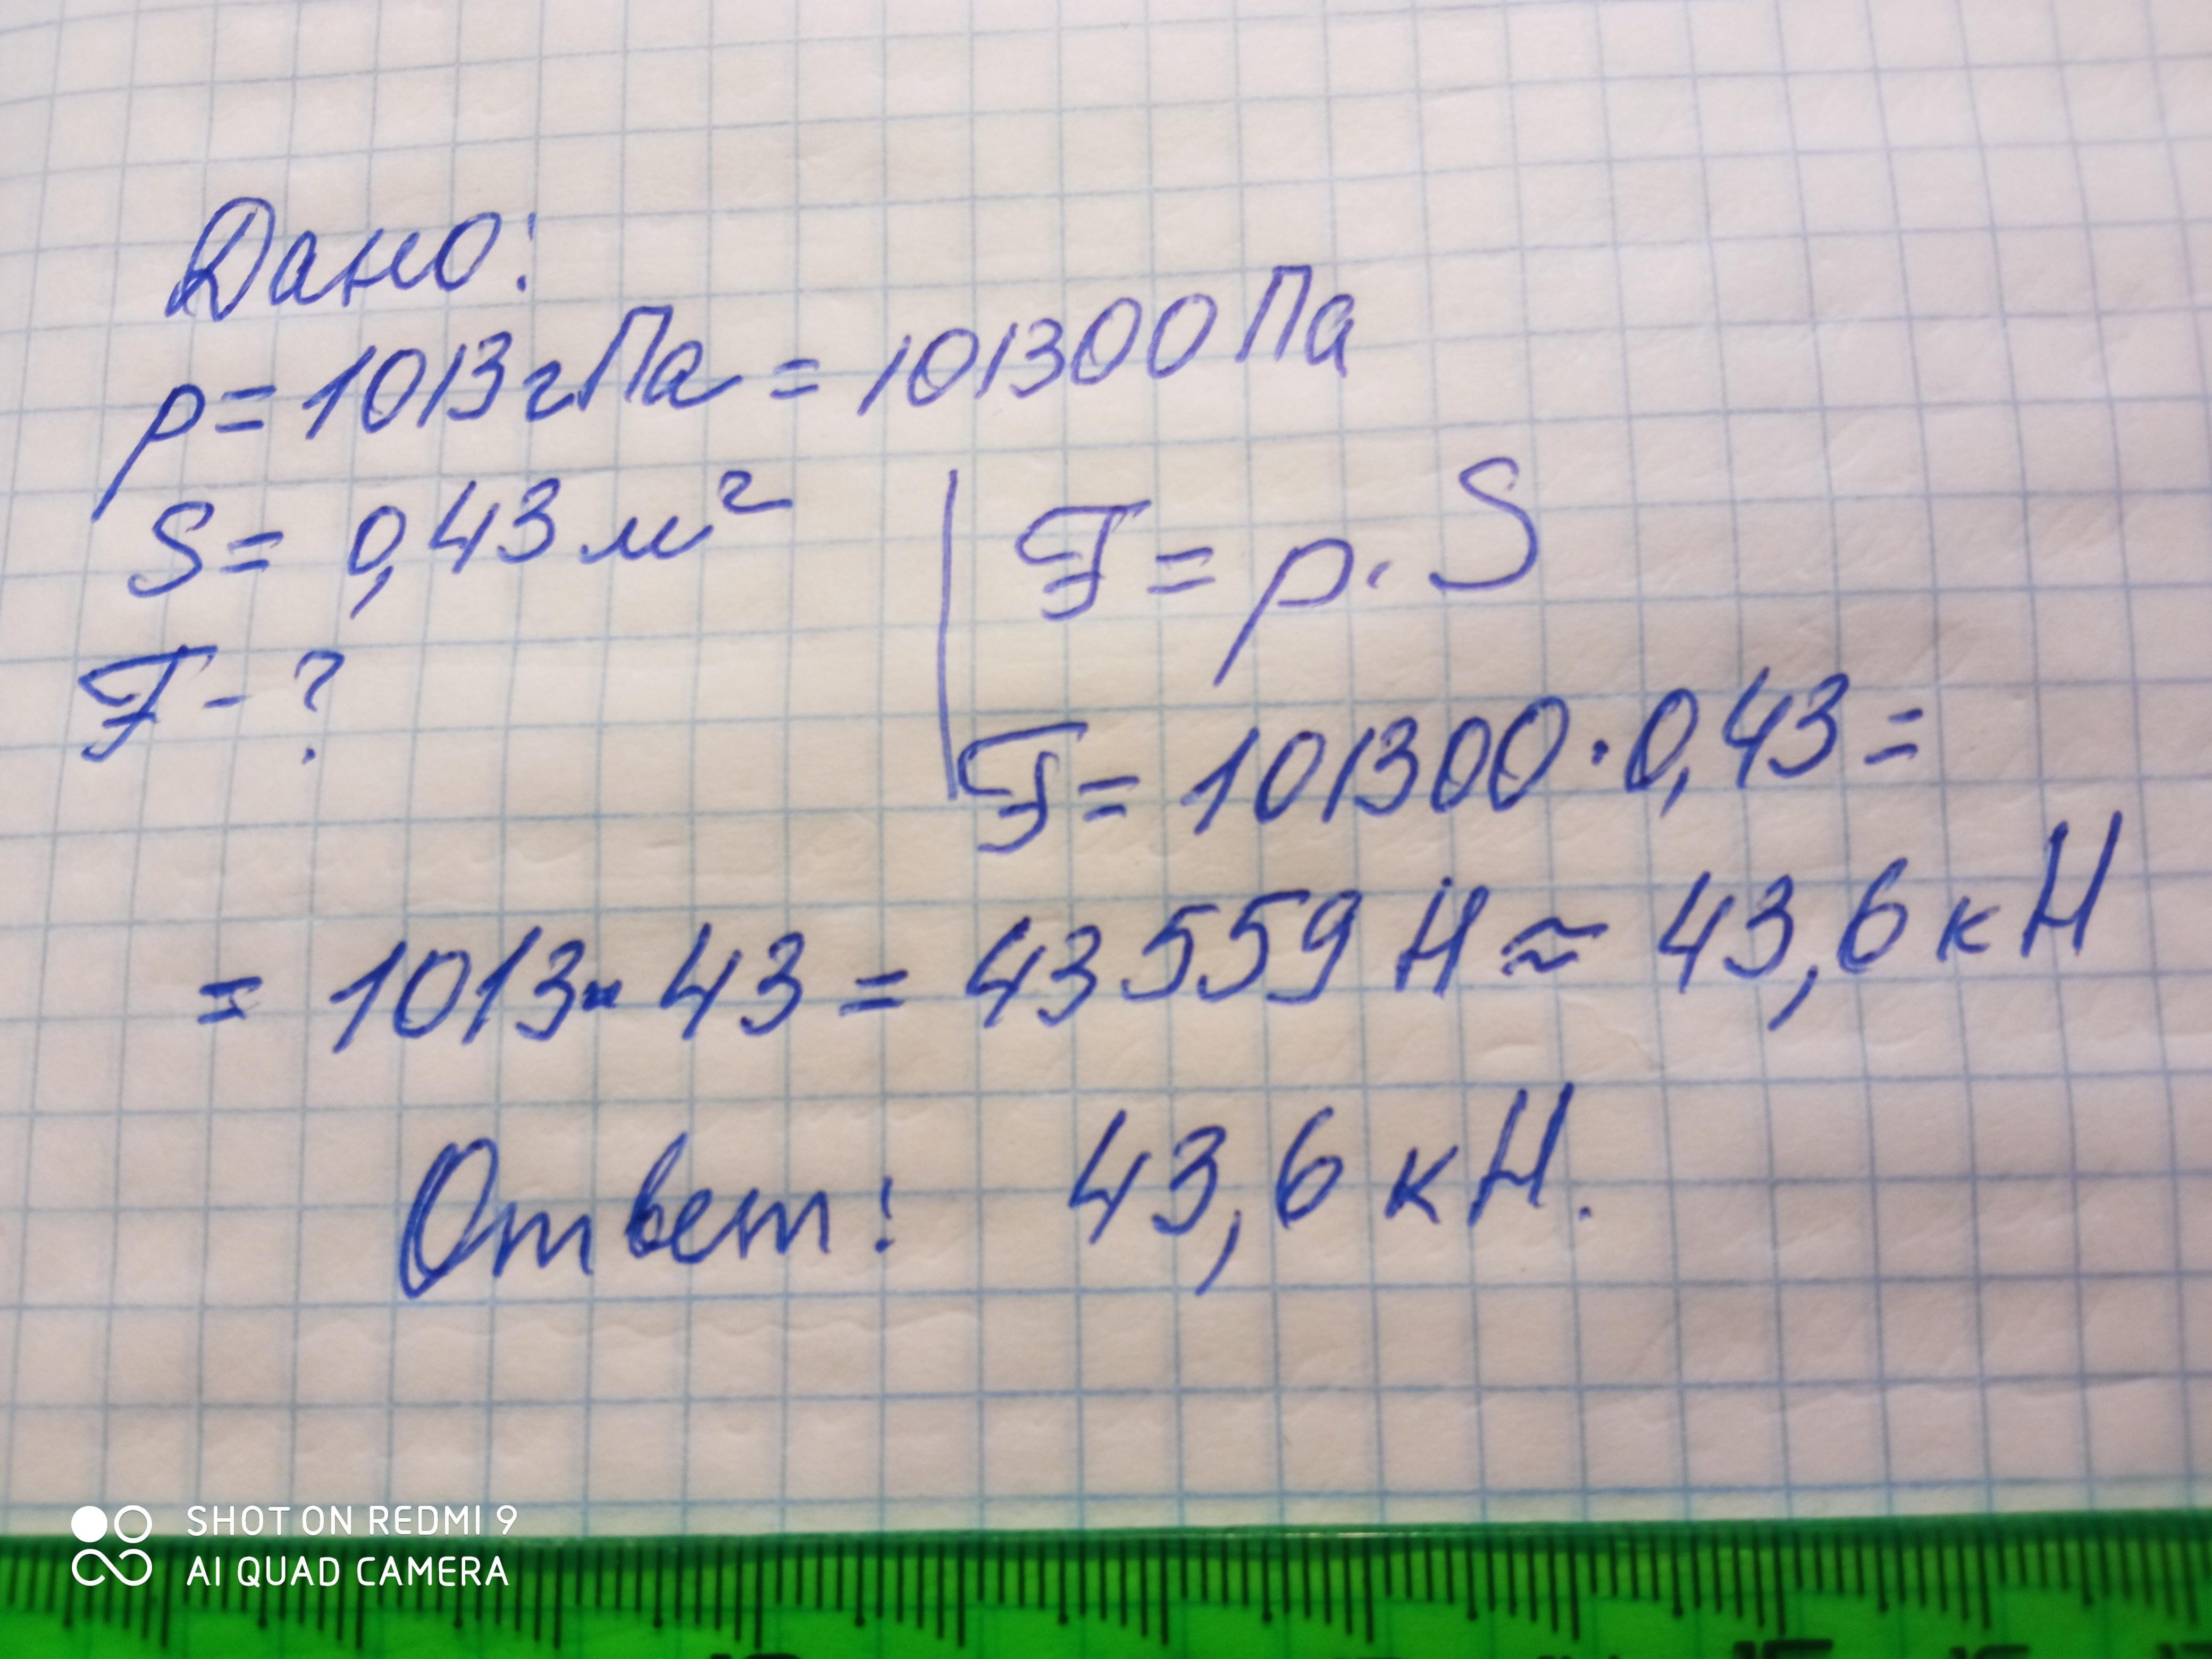 Дано:
p = 1013 гПа = 101300 Па
S = 0,43 м²
F = p · S
F - ?
F = 101300 · 0,43 =
= 1013 · 43 = 43559 Н ≈ 43,6 кН
Ответ: 43,6 кН.
SHOT ON REDMI 9
AI QUAD CAMERA